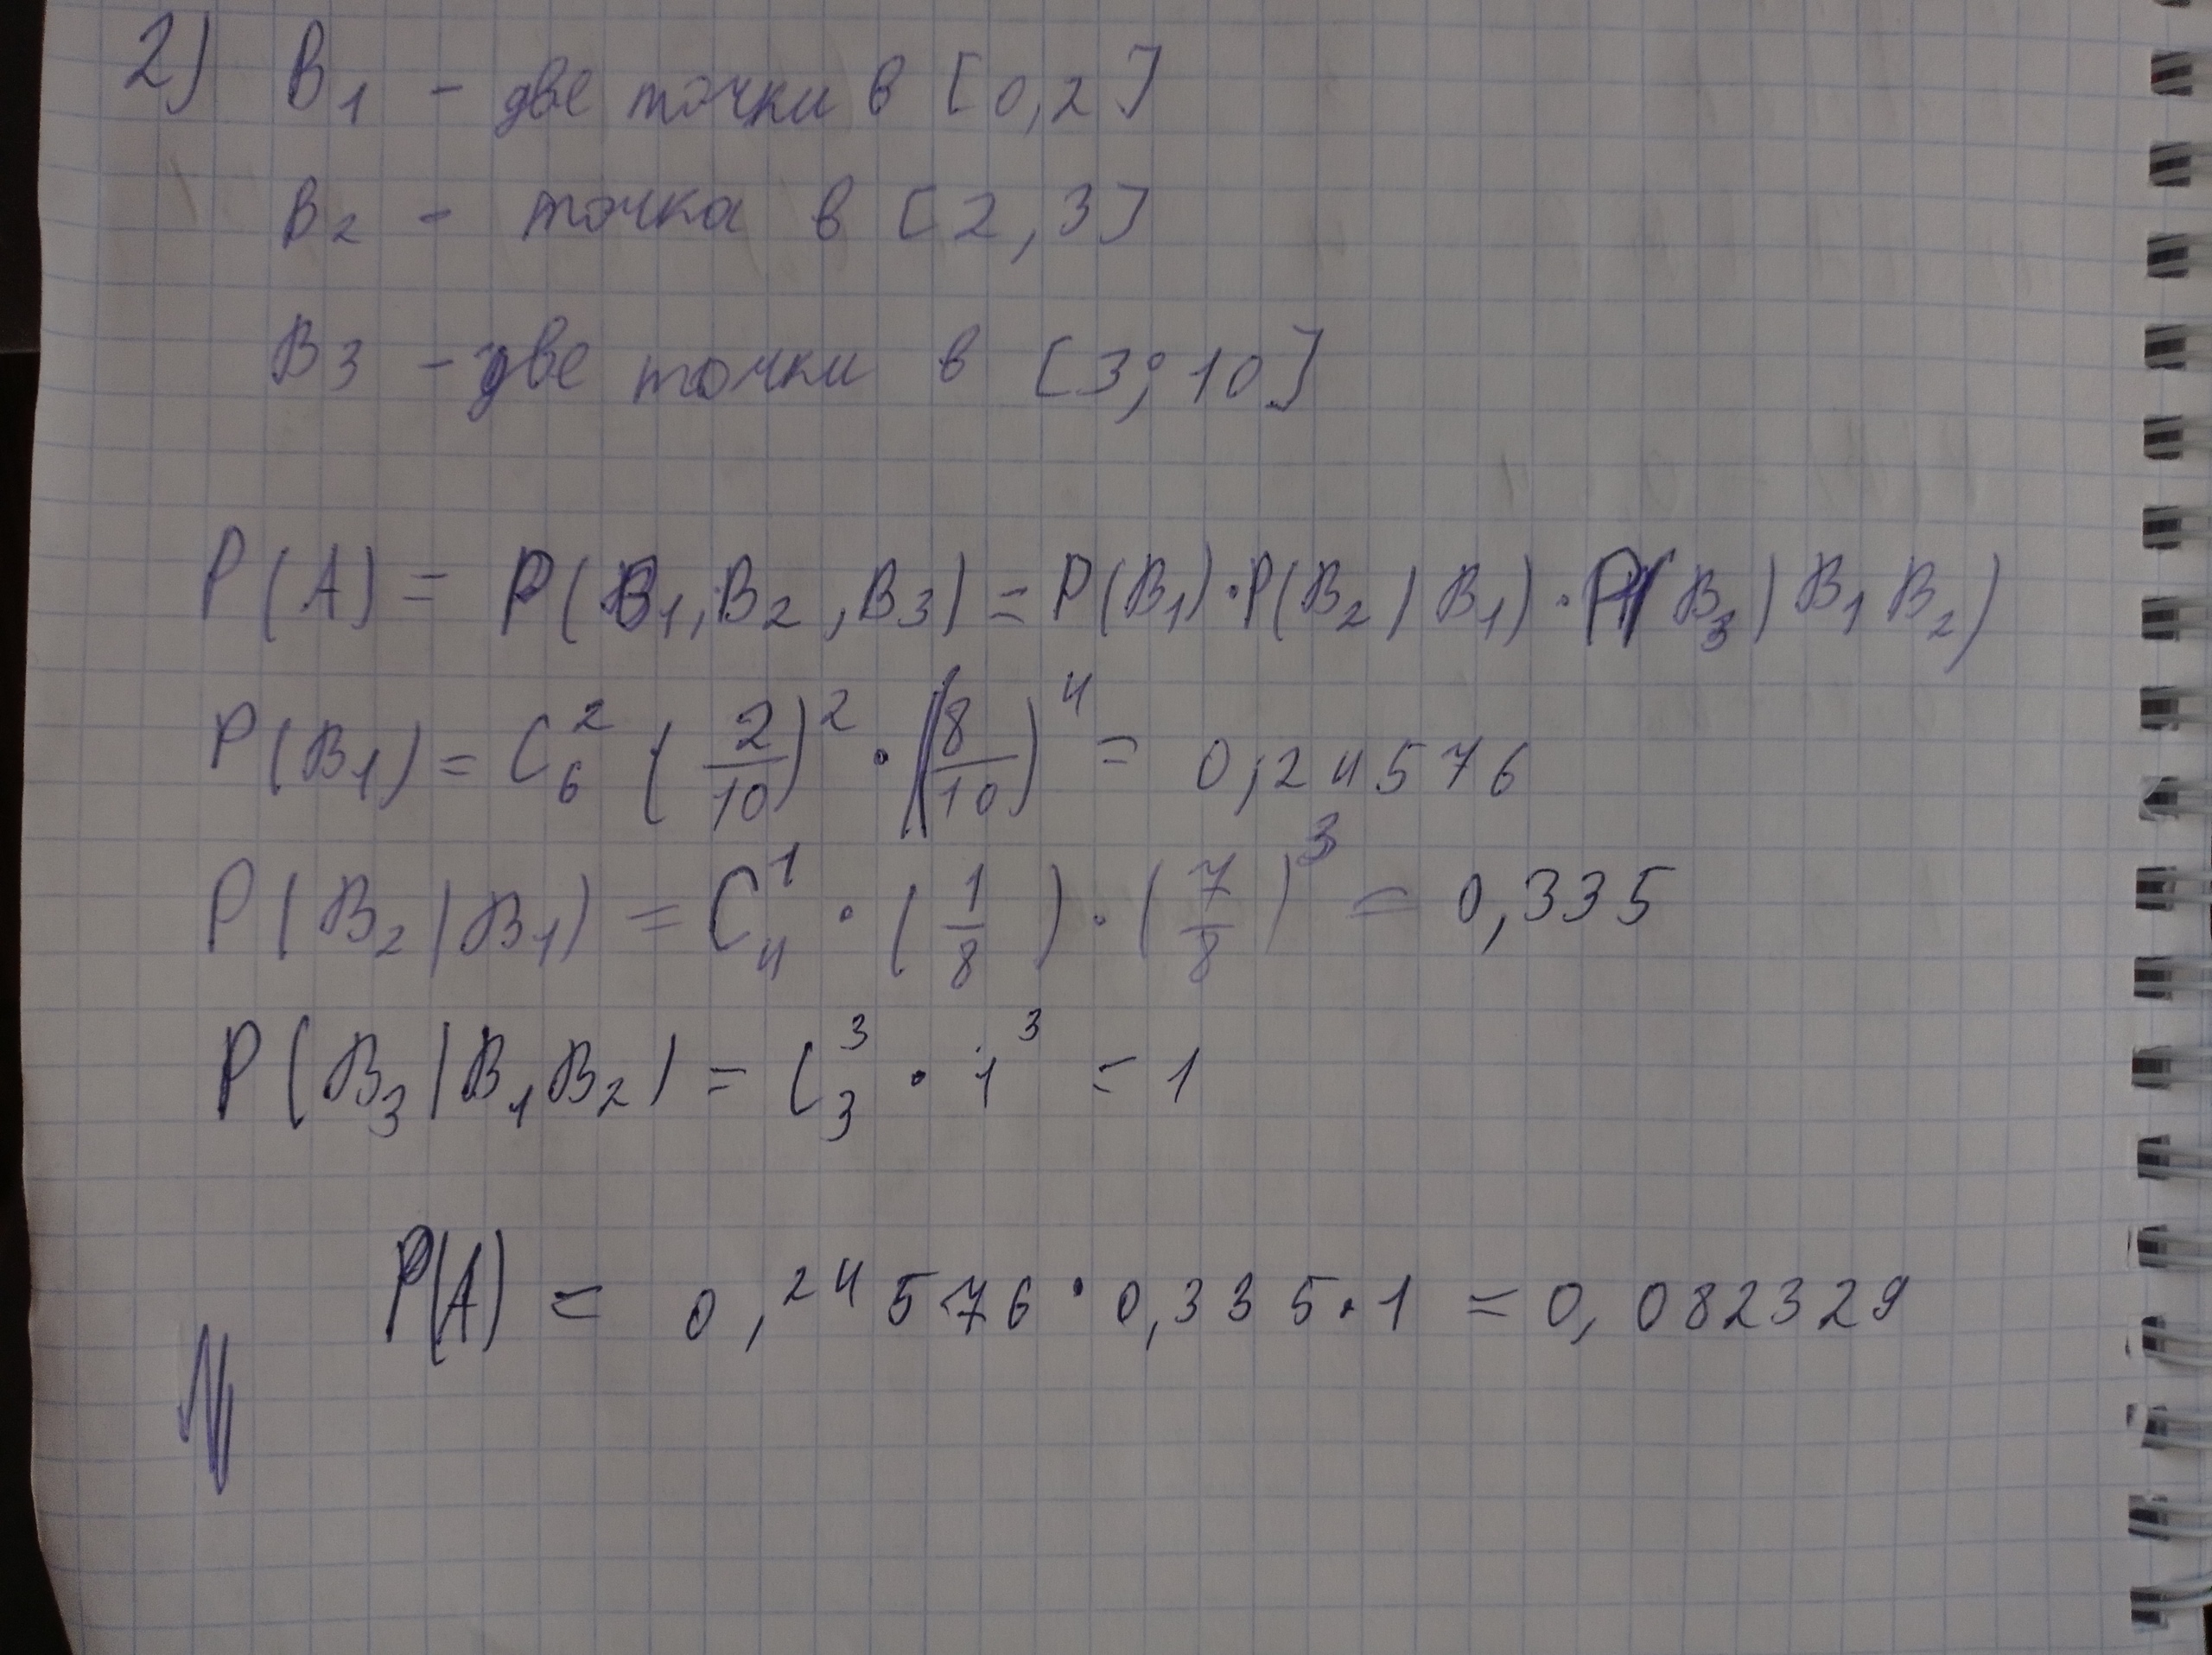 2) B₁ - две точки в [0,2]
B₂ - точка в [2,3]
B₃ - две точки в [3;10]
P(A) = P(B₁,B₂,B₃) = P(B₁)·P(B₂|B₁)·P(B₃|B₁B₂)
P(B₁) = C₆² (2/10)² · (8/10)⁴ = 0,24576
P(B₂|B₁) = C₄¹ · (1/8) · (7/8)³ = 0,335
P(B₃|B₁B₂) = C₃³ · 1³ = 1
P(A) = 0,24576·0,335·1 = 0,082329